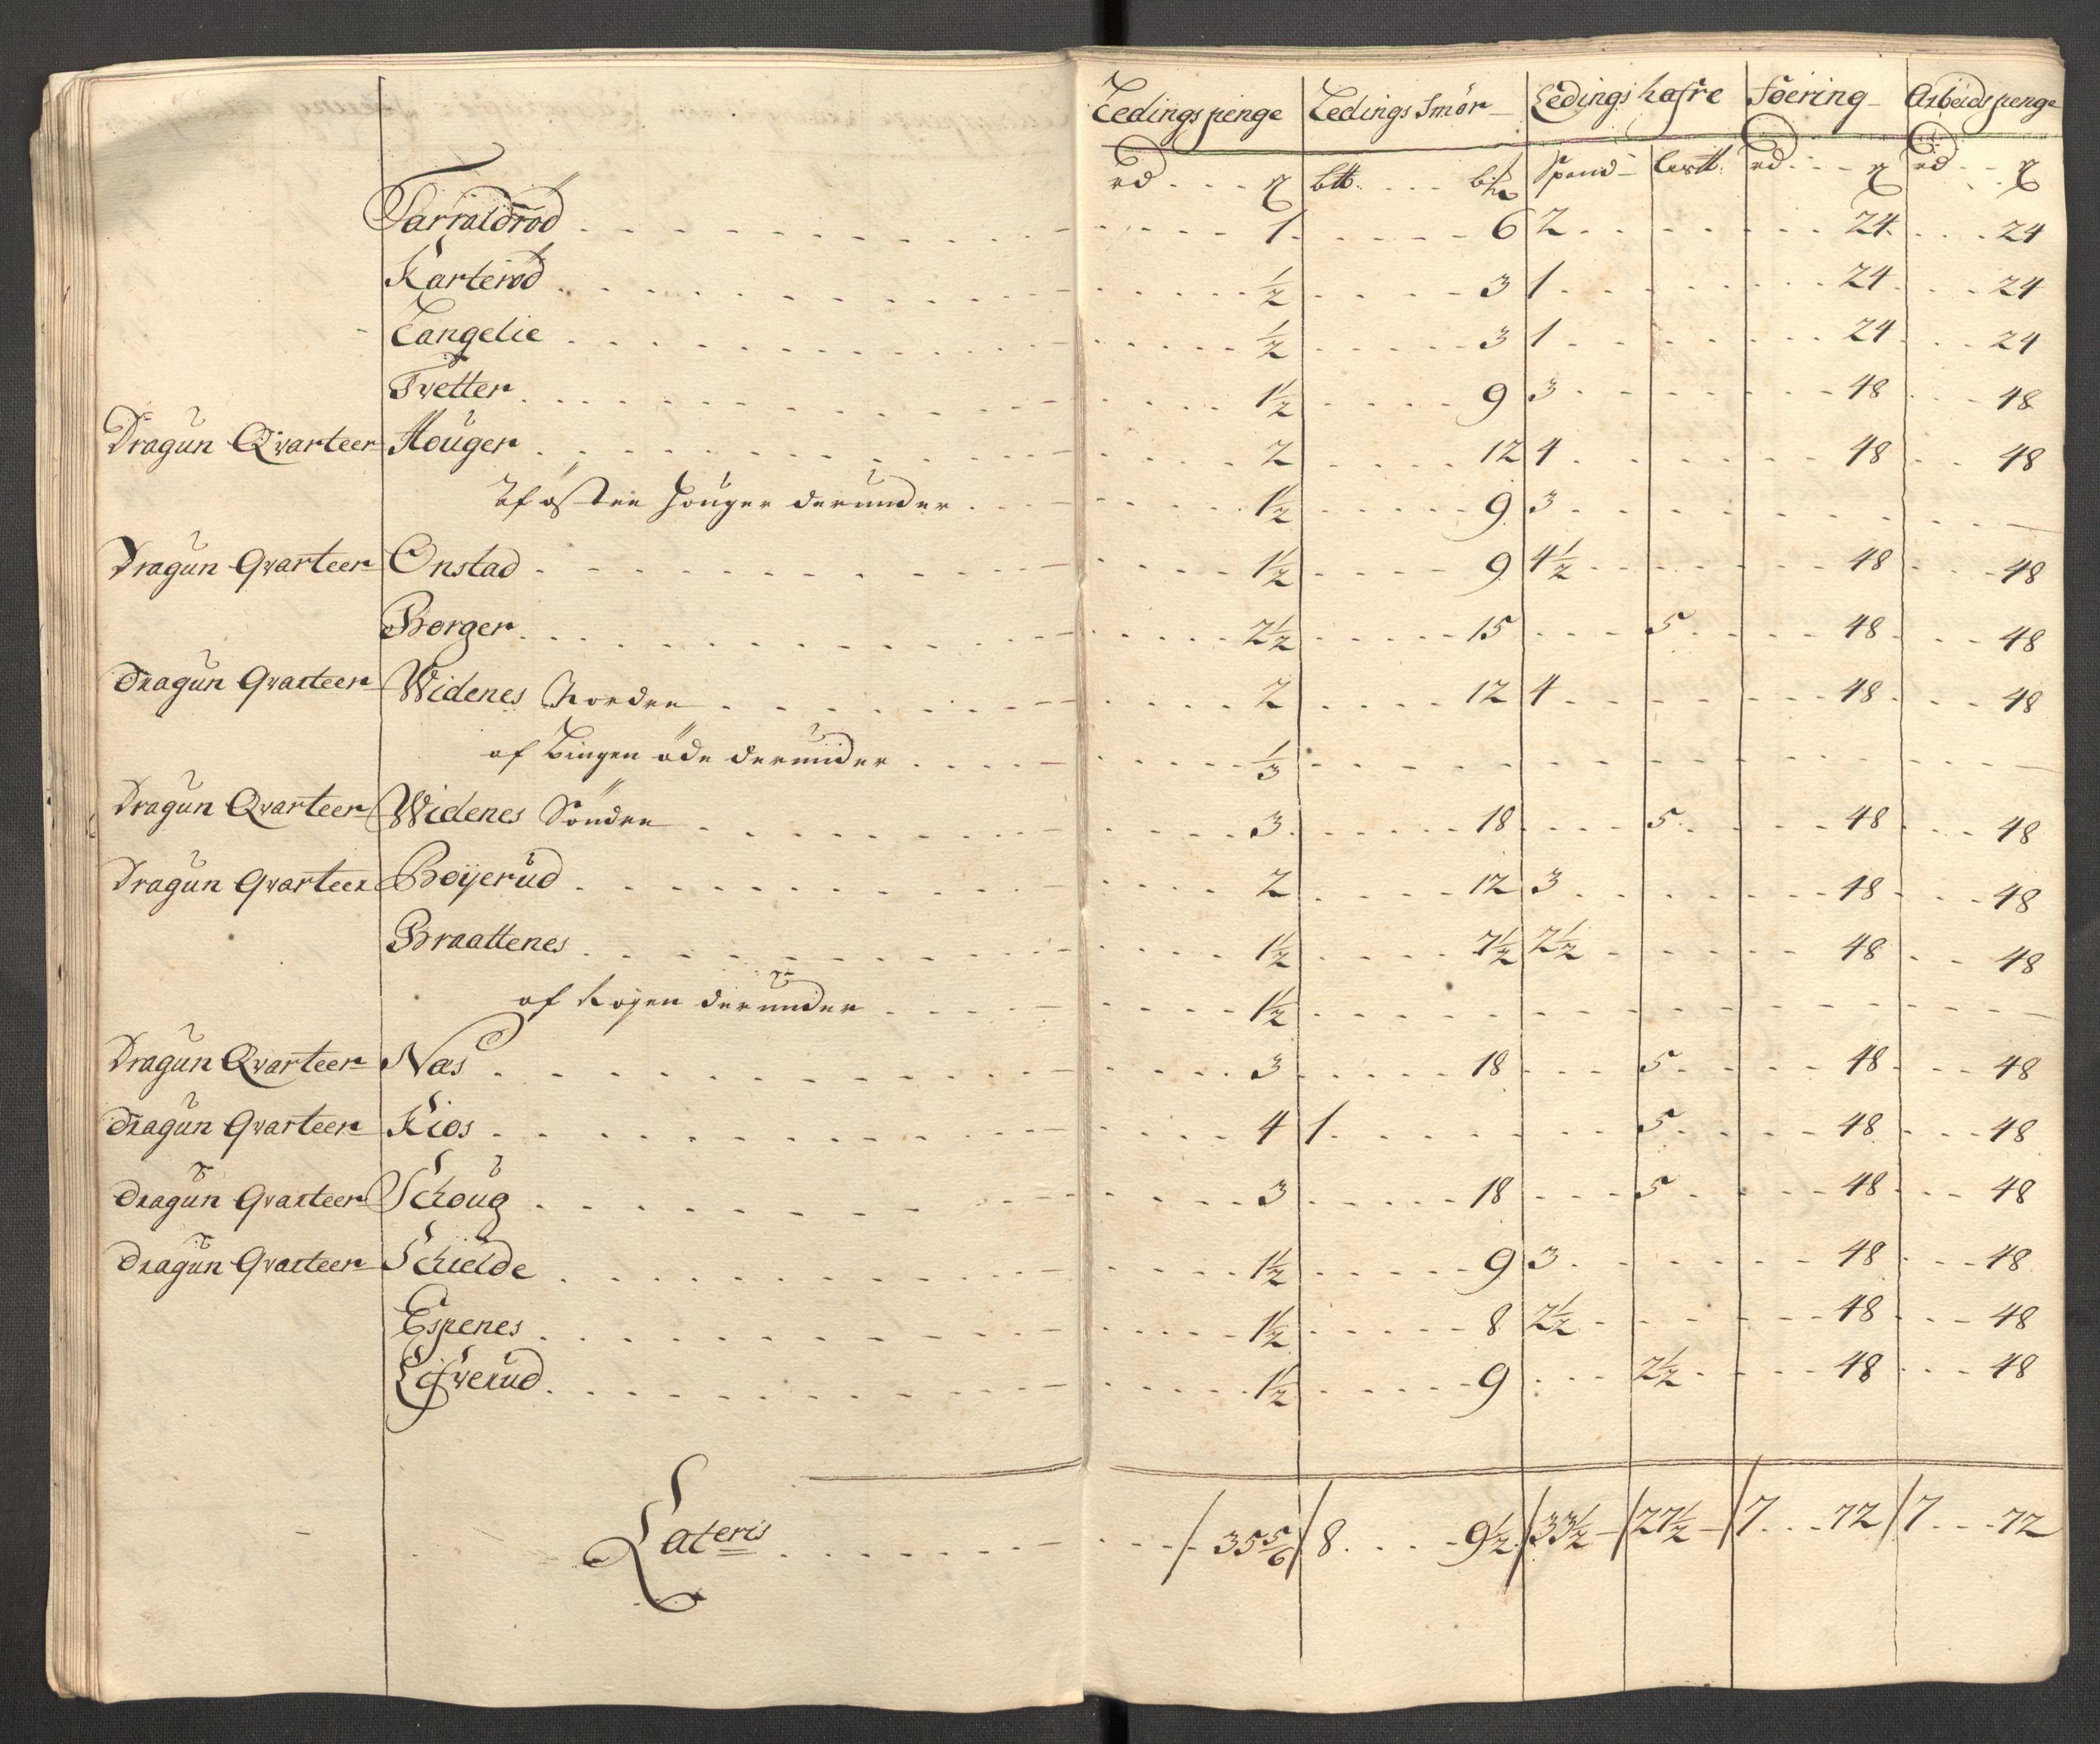 Ledings penge Ledings Smör Ledings hafre Foering Arbeids penge
rd ß btt: Spand rd ß rd ß
Tarraldrød 1 6 2 24 24
Karterød ½ 3 1 24 24
Langelie ½ 3 1 24 24
Tvetter 1½ 9 3 48 48
Dragun Qvarteer Houger 2 12 4 48 48
Af østre Houger derunder 1½ 9 3
Dragun Qvarteer Onstad 1½ 9 4½ 48 48
Borger 2½ 15 5 48 48
Dragun Qvarteer Widenes Nordre 2 12 4 48 48
af Bingen øde derunder ⅓
Dragun Qvarteer Widenes Søndre 3 18 5 48 48
Dragun Qvarteer Bøÿerud 2 12 3 48 48
Braattenes 1½ 7½ 2½ 48 48
af derunder 1½
Dragun Qvarteer Næs 3 18 5 48 48
Dragun Qvarteer Kios 4 1 5 48 48
Dragun Qvarteer Schoug 3 18 5 48 48
Dragun Qvarteer Schielde 1½ 9 3 48 48
Espenes 1½ 8 2½ 48 48
Lifverud 1½ 9 2½ 48 48
Lateris 35⅚ 8 9½ 33½ 27½ 7 72 7 72